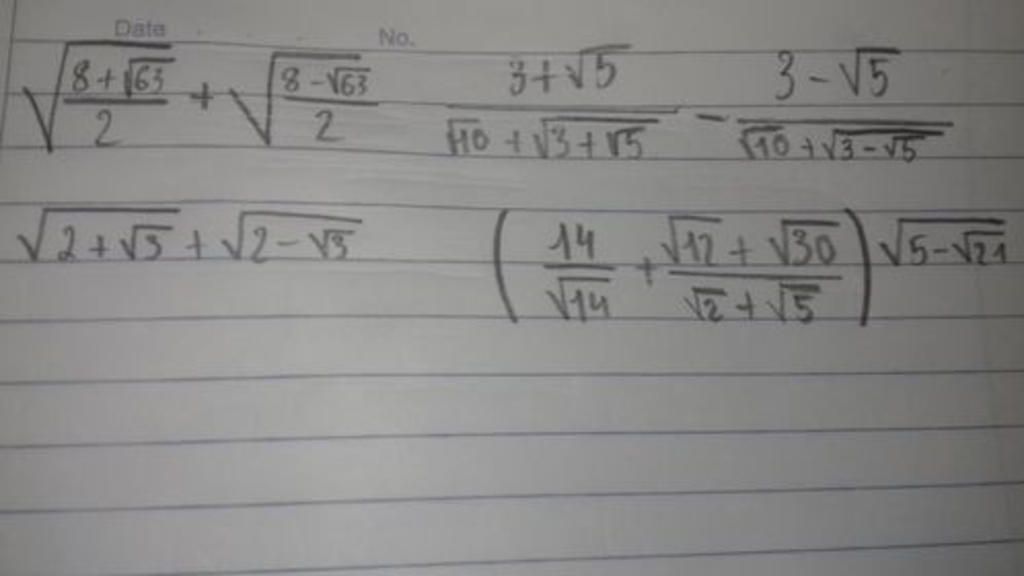 Date No.
√((8+√63)/2) + √((8-√63)/2) (3+√5)/(√10+√(3+√5)) - (3-√5)/(√10+√(3-√5))
√(2+√3) + √(2-√3) (14/√14 + (√12+√30)/(√2+√5)) √(5-√21)